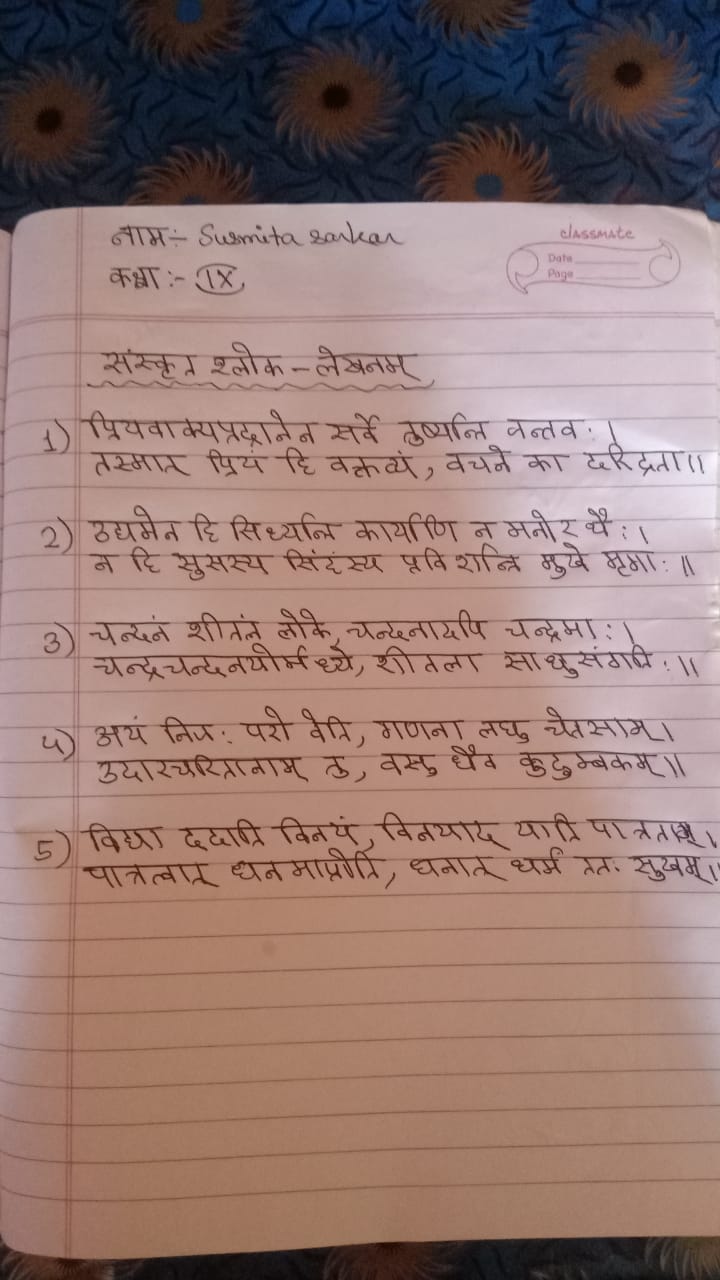 नाम:- Susmita sarkar
कक्षा :- IX
classmate
Date
Page
संस्कृत श्लोक - लेखनम्
1) प्रियवाक्यप्रदानेन सर्वे तुष्यन्ति वन्तवः।
तस्मात् प्रियं हि वक्तव्यं, वचने का दरिद्रता॥
2) उद्यमेन हि सिध्यन्ति कार्याणि न मनोरथैः।
न हि सुसस्य सिंहंस्य प्रविशन्ति मुखे मृगाः॥
3) चन्दनं शीतलं लोके, चन्दनादपि चन्द्रमाः।
चन्द्रचन्दनयोर्मध्ये, शीतला साधुसंगतिः॥
4) अयं निजः परो वेति, गणना लघु चेतसाम्।
उदारचरितानाम् तु, वसुधैव कुटुम्बकम्॥
5) विद्या ददाति विनयं, विनयाद् याति पात्रताम्।
पात्रत्वात् धनमाप्नोति, धनात् धर्मं ततः सुखम्॥